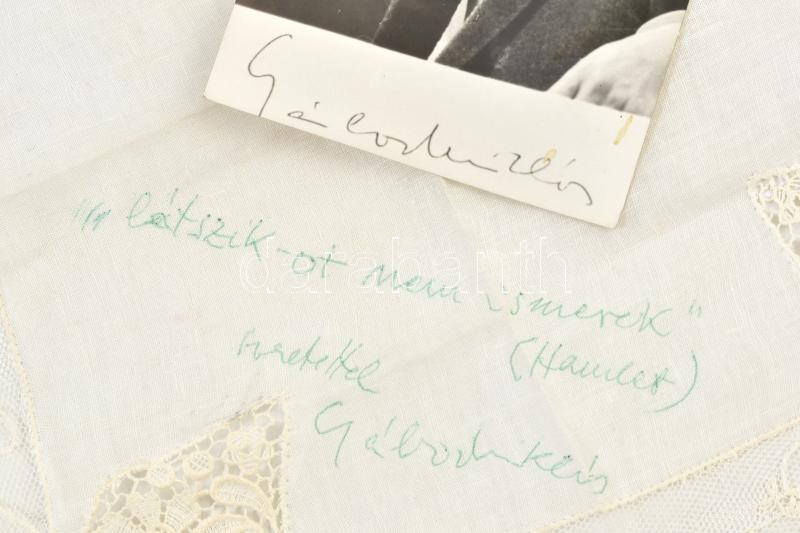 Gábor Miklós
„látszik-ot nem ismerek"
(Hamlet)
szeretettel
Gábor Miklós
darabanth